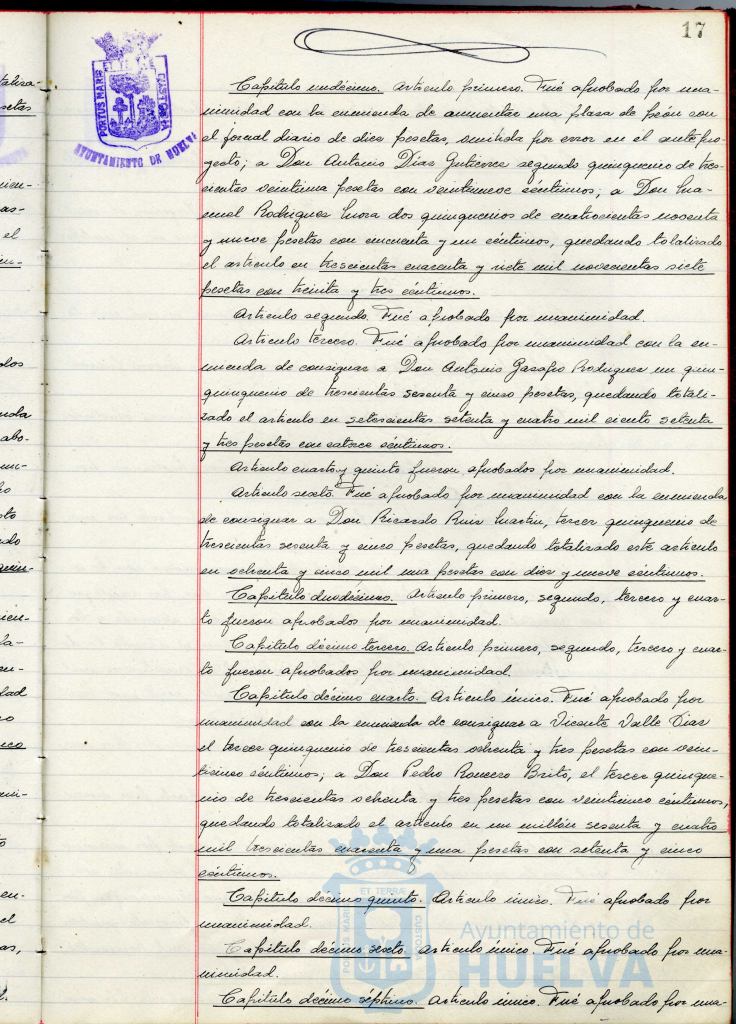 17
PORTUS MARIS
CUSTODIA
AYUNTAMIENTO DE HUELVA
Capítulo undécimo. Artículo primero. Fué aprobado por una-
nimidad con la enmienda de aumentar una plaza de peón con
el jornal diario de diez pesetas, omitida por error en el antepro-
yecto; a Don Antonio Díaz Gutierrez segundo quinquenio de tres-
cientas veintiuna pesetas con veintinueve céntimos; a Don Ma-
nuel Rodriguez Mora dos quinquenios de cuatrocientas noventa
y nueve pesetas con cincuenta y un céntimos, quedando totalizado
el artículo en trescientas cuarenta y siete mil novecientas siete
pesetas con treinta y tres céntimos.
Artículo segundo. Fué aprobado por unanimidad.
Artículo tercero. Fué aprobado por unanimidad con la en-
mienda de consignar a Don Antonio Rodriguez un quin-
quenio de trescientas sesenta y cinco pesetas, quedando totali-
zado el artículo en setecientas setenta y cuatro mil ciento setenta
y tres pesetas con catorce céntimos.
Artículo cuarto y quinto fueron aprobados por unanimidad.
Artículo sexto. Fué aprobado por unanimidad con la enmienda
de consignar a Don Ricardo Ruiz Martín, tercer quinquenio de
trescientas sesenta y cinco pesetas, quedando totalizado este artículo
en ochenta y cinco mil una pesetas con diez y nueve céntimos.
Capítulo duodécimo. Artículo primero, segundo, tercero y cuar-
to fueron aprobados por unanimidad.
Capítulo décimo tercero. Artículo primero, segundo, tercero y cuar-
to fueron aprobados por unanimidad.
Capítulo décimo cuarto. Artículo único. Fué aprobado por
unanimidad con la enmienda de consignar a Vicente Valle Díaz
el tercer quinquenio de trescientas ochenta y tres pesetas con vein-
ticinco céntimos; a Don Pedro Romero Brito, el tercer quinque-
nio de trescientas ochenta y tres pesetas con veinticinco céntimos,
quedando totalizado el artículo en un millón sesenta y cuatro
mil trescientas cuarenta y una pesetas con setenta y cinco
céntimos.
Capítulo décimo quinto. Artículo único. Fué aprobado por
unanimidad.
Capítulo décimo sexto. Artículo único. Fué aprobado por una-
nimidad.
Capítulo décimo séptimo. Artículo único. Fué aprobado por una-
PORTUS MARIS
ET TERRÆ
CUSTODIA
Ayuntamiento de
HUELVA